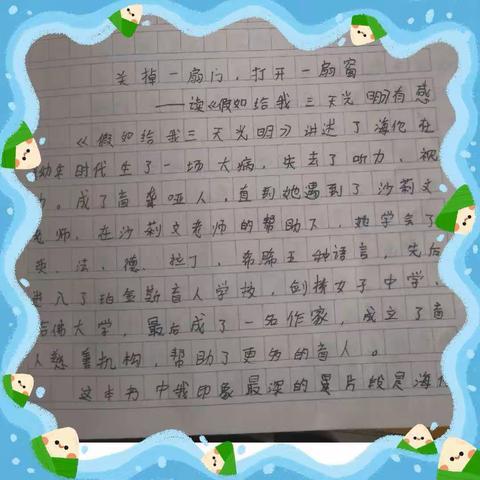 关掉一扇门，打开一扇窗
——读《假如给我三天光明》有感
《假如给我三天光明》讲述了海伦在
幼年时代生了一场大病，失去了听力、视
力。成了盲聋哑人，直到她遇到了沙莉文
老师，在沙莉文老师的帮助下，她学会了
英、法、德、拉丁、希腊五种语言，先后
进入了珀金斯盲人学校，剑桥女子中学、
哈佛大学，最后成了一名作家，成立了盲
人慈善机构，帮助了更多的盲人。
这本书中我印象最深的片段是海